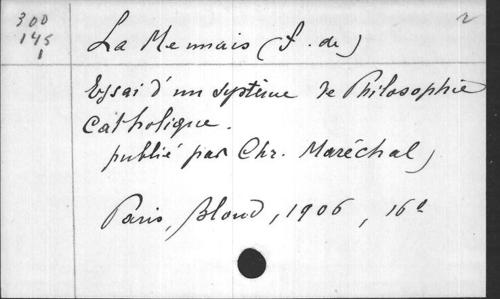 300
145
1
2
La Mennais (F. de)
Essai d'un système de Philosophie
Catholique.
publié par Chr. Maréchal)
Paris, Bloud, 1906, 16e